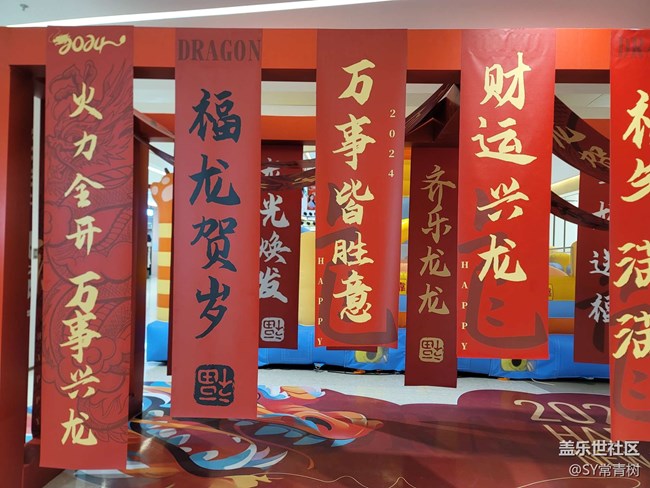 2024
火力全开 万事兴龙
DRAGON
福龙贺岁
光焕发
万事皆胜意
2024
HAPPY
齐乐龙龙
财运兴龙
HAPPY
造福
洁洁
202
盖乐世社区
@SY常青树